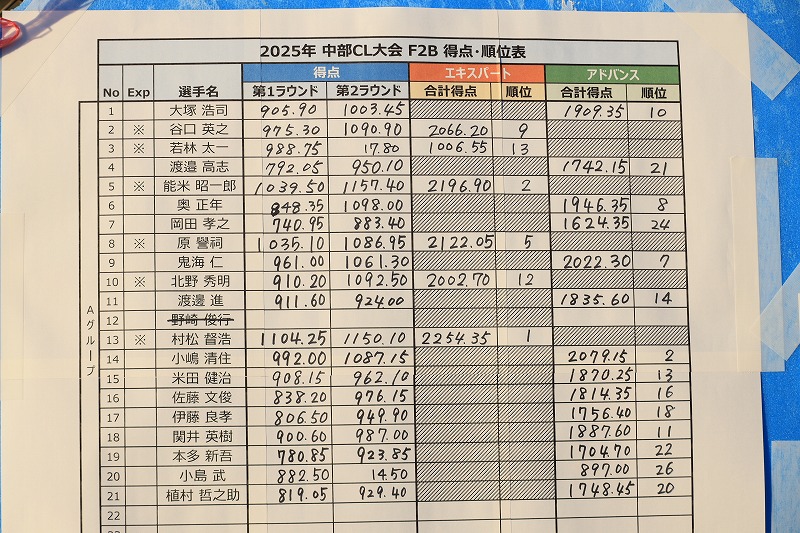 2025年 中部CL大会 F2B 得点・順位表
得点 エキスパート アドバンス
No Exp 選手名 第1ラウンド 第2ラウンド 合計得点 順位 合計得点 順位
1 大塚 浩司 905.90 1003.45 1909.35 10
2 ※ 谷口 英之 975.30 1090.90 2066.20 9
3 ※ 若林 太一 988.75 17.80 1006.55 13
4 渡邉 高志 792.05 950.10 1742.15 21
5 ※ 能米 昭一郎 1039.50 1157.40 2196.90 2
6 奥 正年 848.35 1098.00 1946.35 8
7 岡田 孝之 740.95 883.40 1624.35 24
8 ※ 原 譽祠 1035.10 1086.95 2122.05 5
9 鬼海 仁 961.00 1061.30 2022.30 7
10 ※ 北野 秀明 910.20 1092.50 2002.70 12
11 渡邊 進 911.60 924.00 1835.60 14
12 野崎 俊行
13 ※ 村松 督浩 1104.25 1150.10 2254.35 1
14 小嶋 清住 992.00 1087.15 2079.15 2
15 米田 健治 908.15 962.10 1870.25 13
16 佐藤 文俊 838.20 976.15 1814.35 16
17 伊藤 良孝 806.50 949.90 1756.40 18
18 関井 英樹 900.60 987.00 1887.60 11
19 本多 新吾 780.85 923.85 1704.70 22
20 小島 武 882.50 14.50 897.00 26
21 植村 哲之助 819.05 929.40 1748.45 20
22
Aグループ